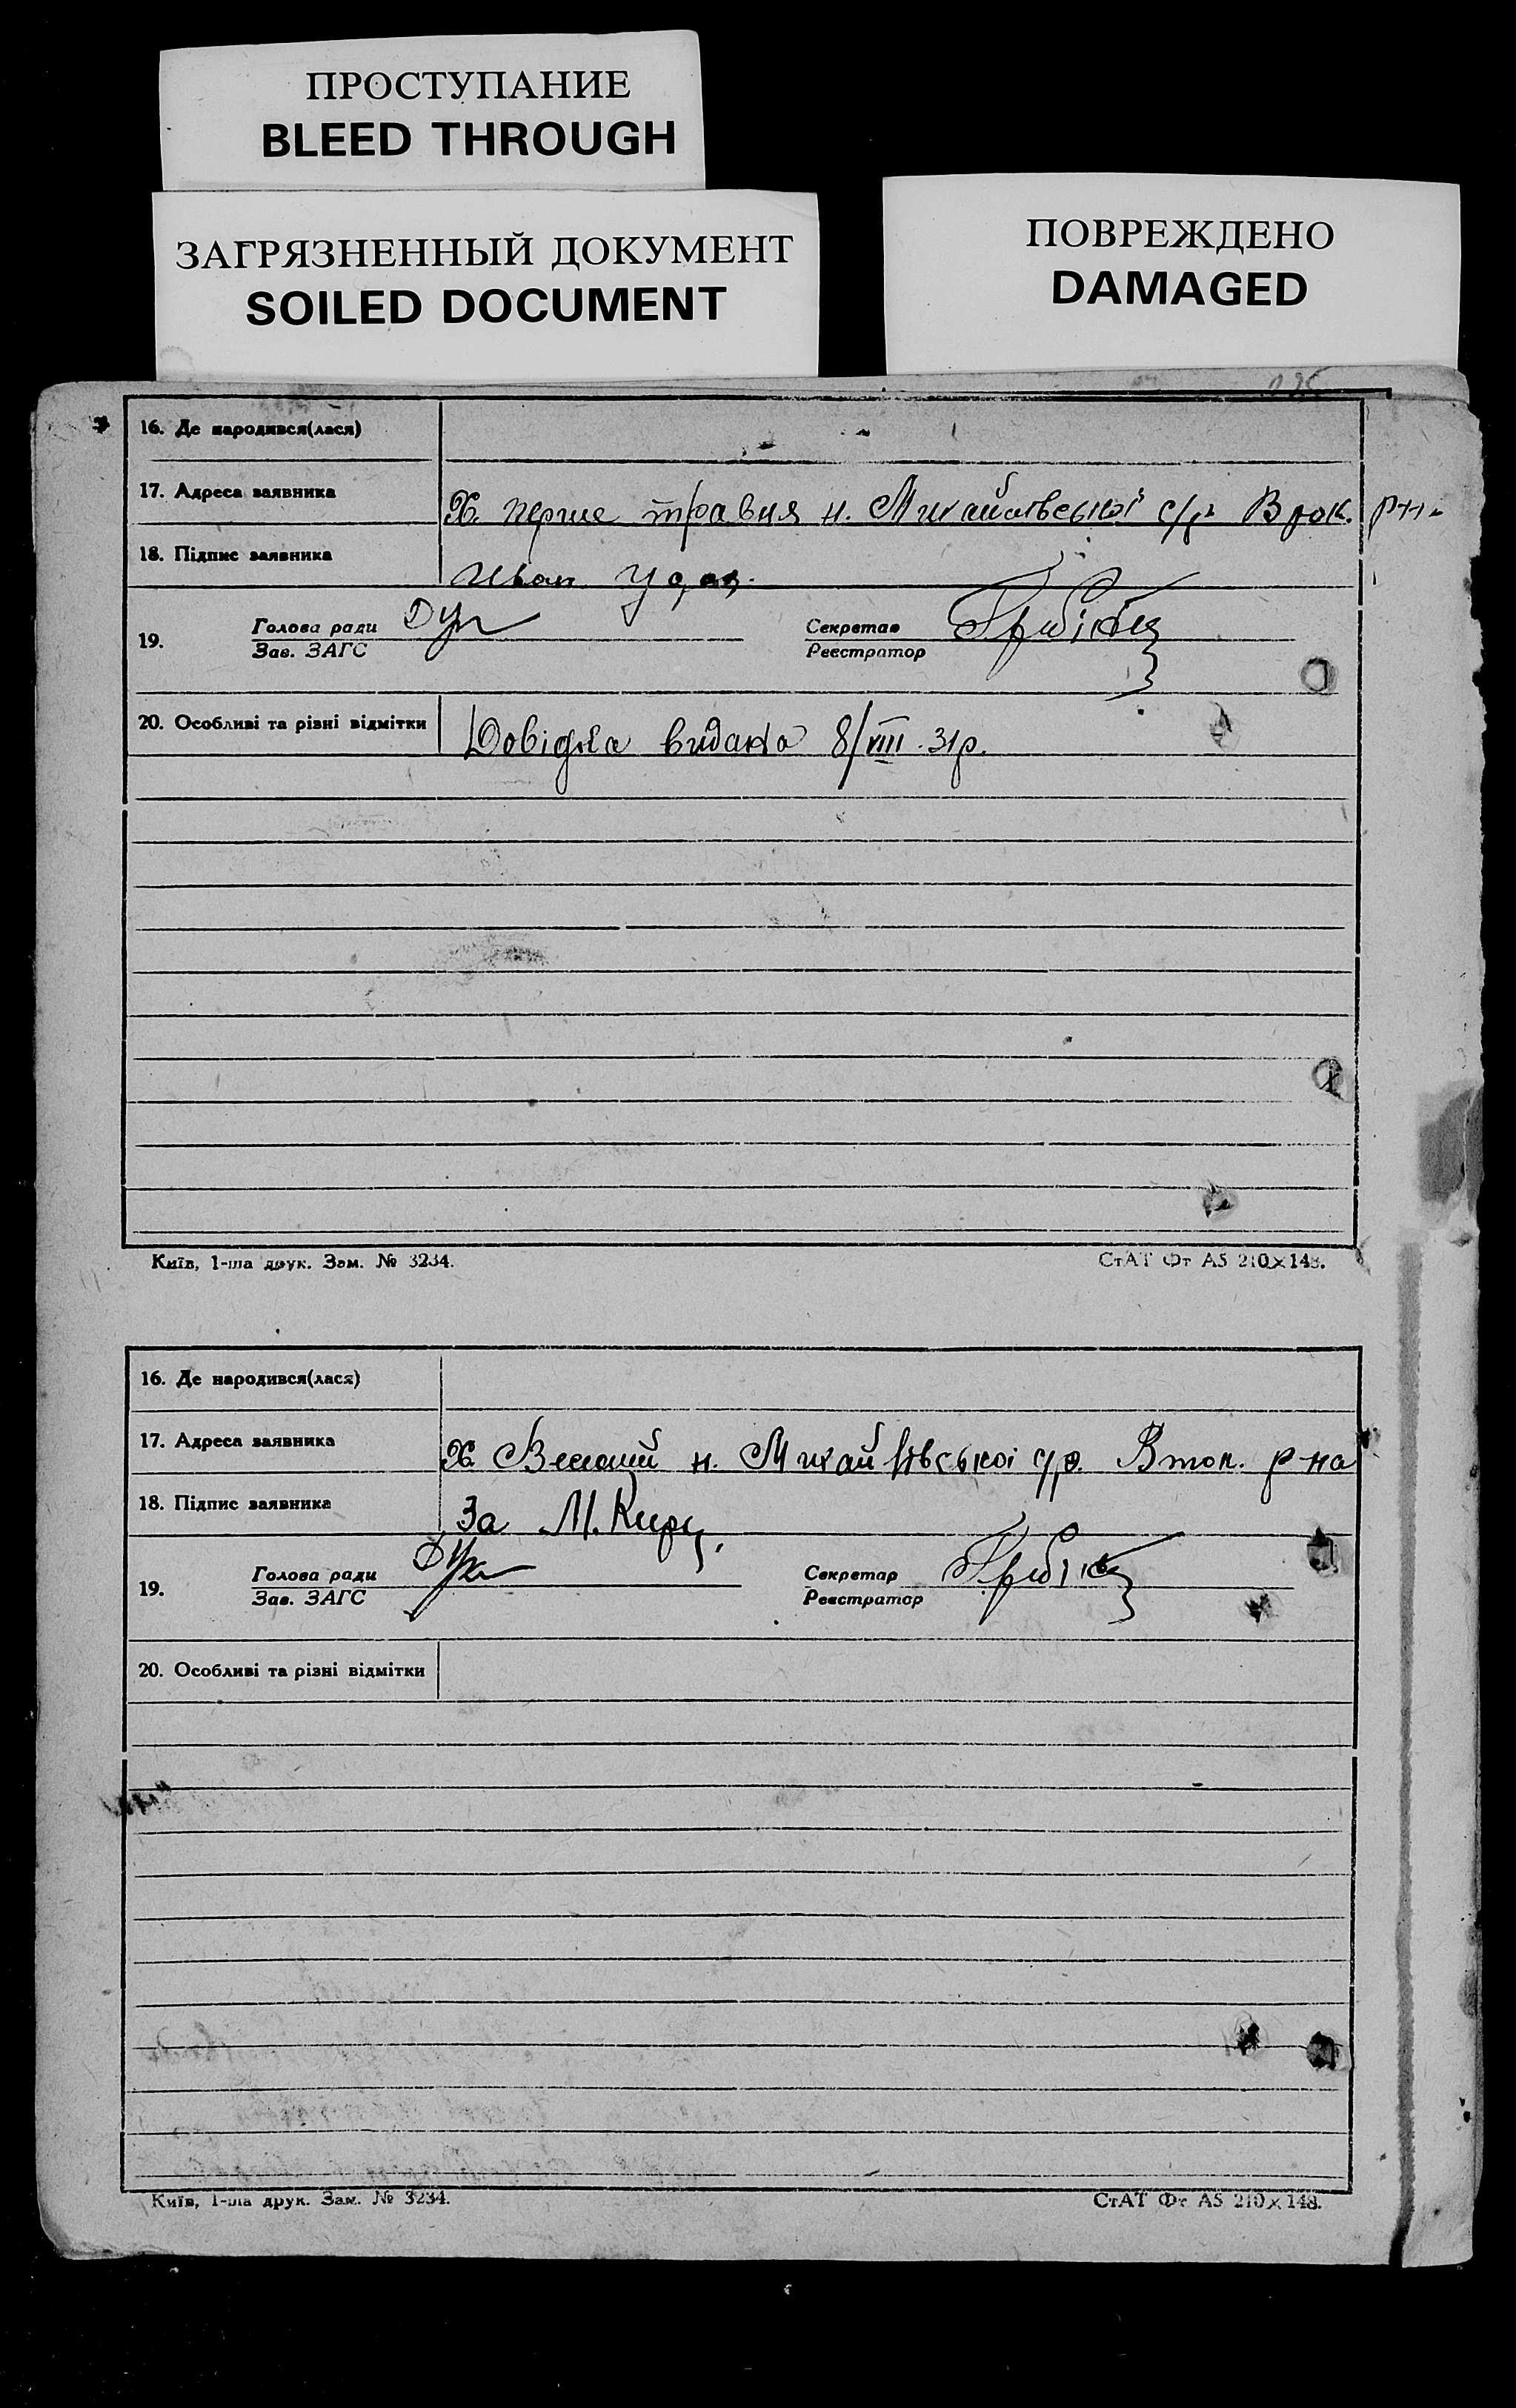 ПРОСТУПАНИЕ
BLEED THROUGH
ЗАГРЯЗНЕННЫЙ ДОКУМЕНТ
SOILED DOCUMENT
ПОВРЕЖДЕНО
DAMAGED
16. Де народився(лася)
17. Адреса заявника Х. перше травня н. Михайлівської с/р
18. Підпис заявника Иван
19. Голова ради Секретар
Зав. ЗАГС Реєстратор
20. Особливі та різні відмітки Довідка видана 8/VIII. 31р.
Київ, 1-ша друк. Зам. № 3234. СтАТ Фт А5 210×148.
16. Де народився(лася)
17. Адреса заявника Х. н. Михайлівської с/р. р-на
18. Підпис заявника За М.
19. Голова ради Секретар
Зав. ЗАГС Реєстратор
20. Особливі та різні відмітки
Київ, 1-ша друк. Зам. № 3234. СтАТ Фт А5 210×148.